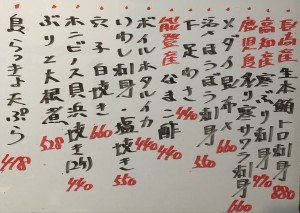 長崎産 生本鮪トロ刺身 880
高知産 寒ぶり刺身
鹿児島産 炙り寒サワラ刺身 660
メダイ昆布〆
活ほうぼう刺身
下足わさ 440
能登産 なまこ酢 440
ボイルホタルイカ
いわし刺身 塩焼き 550
穴子白焼き 660
ホンビノス貝浜焼き 440
ぶりと大根煮 528
島らっきょ天ぷら 418